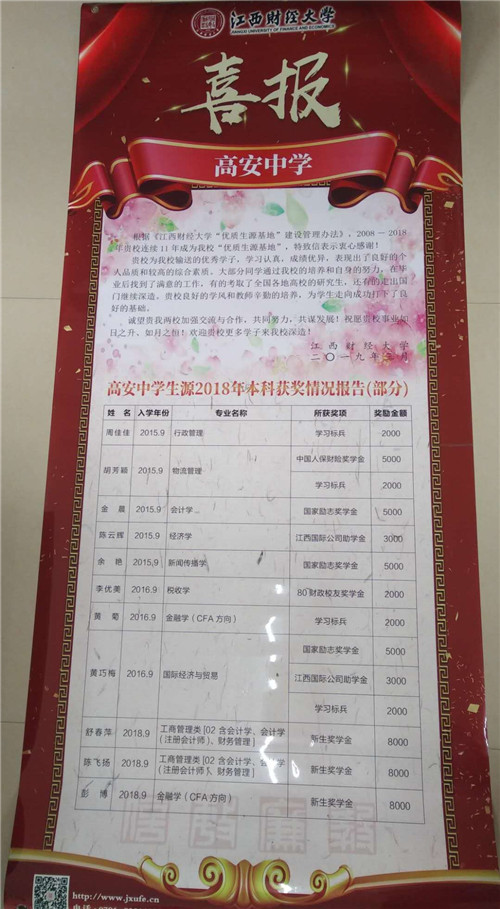 江西财经大学
JIANGXI UNIVERSITY OF FINANCE AND ECONOMICS
喜报
高安中学
根据《江西财经大学“优质生源基地”建设管理办法》，2008－2018
年贵校连续11年成为我校“优质生源基地”，特致信表示衷心感谢！
贵校为我校输送的优秀学子，学习认真，成绩优异，表现出了良好的个
人品质和较高的综合素质。大部分同学通过我校的培养和自身的努力，在毕
业后找到了满意的工作，有的考取了全国各地高校的研究生，还有的走出国
门继续深造，贵校良好的学风和教师辛勤的培养，为学生走向成功打下了良
好的基础。
诚望贵我两校加强交流与合作，共同努力，共谋发展！祝愿贵校事业如
日之升、如月之恒！欢迎贵校更多学子来我校深造！
江西财经大学
二〇一九年三月
高安中学生源2018年本科获奖情况报告(部分)
姓名 入学年份 专业名称 所获奖项 奖励金额
周佳佳 2015.9 行政管理 学习标兵 2000
胡芳颖 2015.9 物流管理 中国人保财险奖学金 5000
学习标兵 2000
金晨 2015.9 会计学 国家励志奖学金 5000
陈云辉 2015.9 经济学 江西国际公司助学金 3000
余艳 2015.9 新闻传播学 国家励志奖学金 5000
李优美 2016.9 税收学 80财政校友奖学金 2000
黄菊 2016.9 金融学（CFA方向） 学习标兵 2000
黄巧梅 2016.9 国际经济与贸易 国家励志奖学金 5000
江西国际公司助学金 3000
学习标兵 2000
舒春萍 2018.9 工商管理类[02 含会计学、会计学（注册会计师）、财务管理] 新生奖学金 8000
陈飞扬 2018.9 工商管理类[02 含会计学、会计学（注册会计师）、财务管理] 新生奖学金 8000
彭博 2018.9 金融学（CFA方向） 新生奖学金 8000
http://www.jxufe.cn